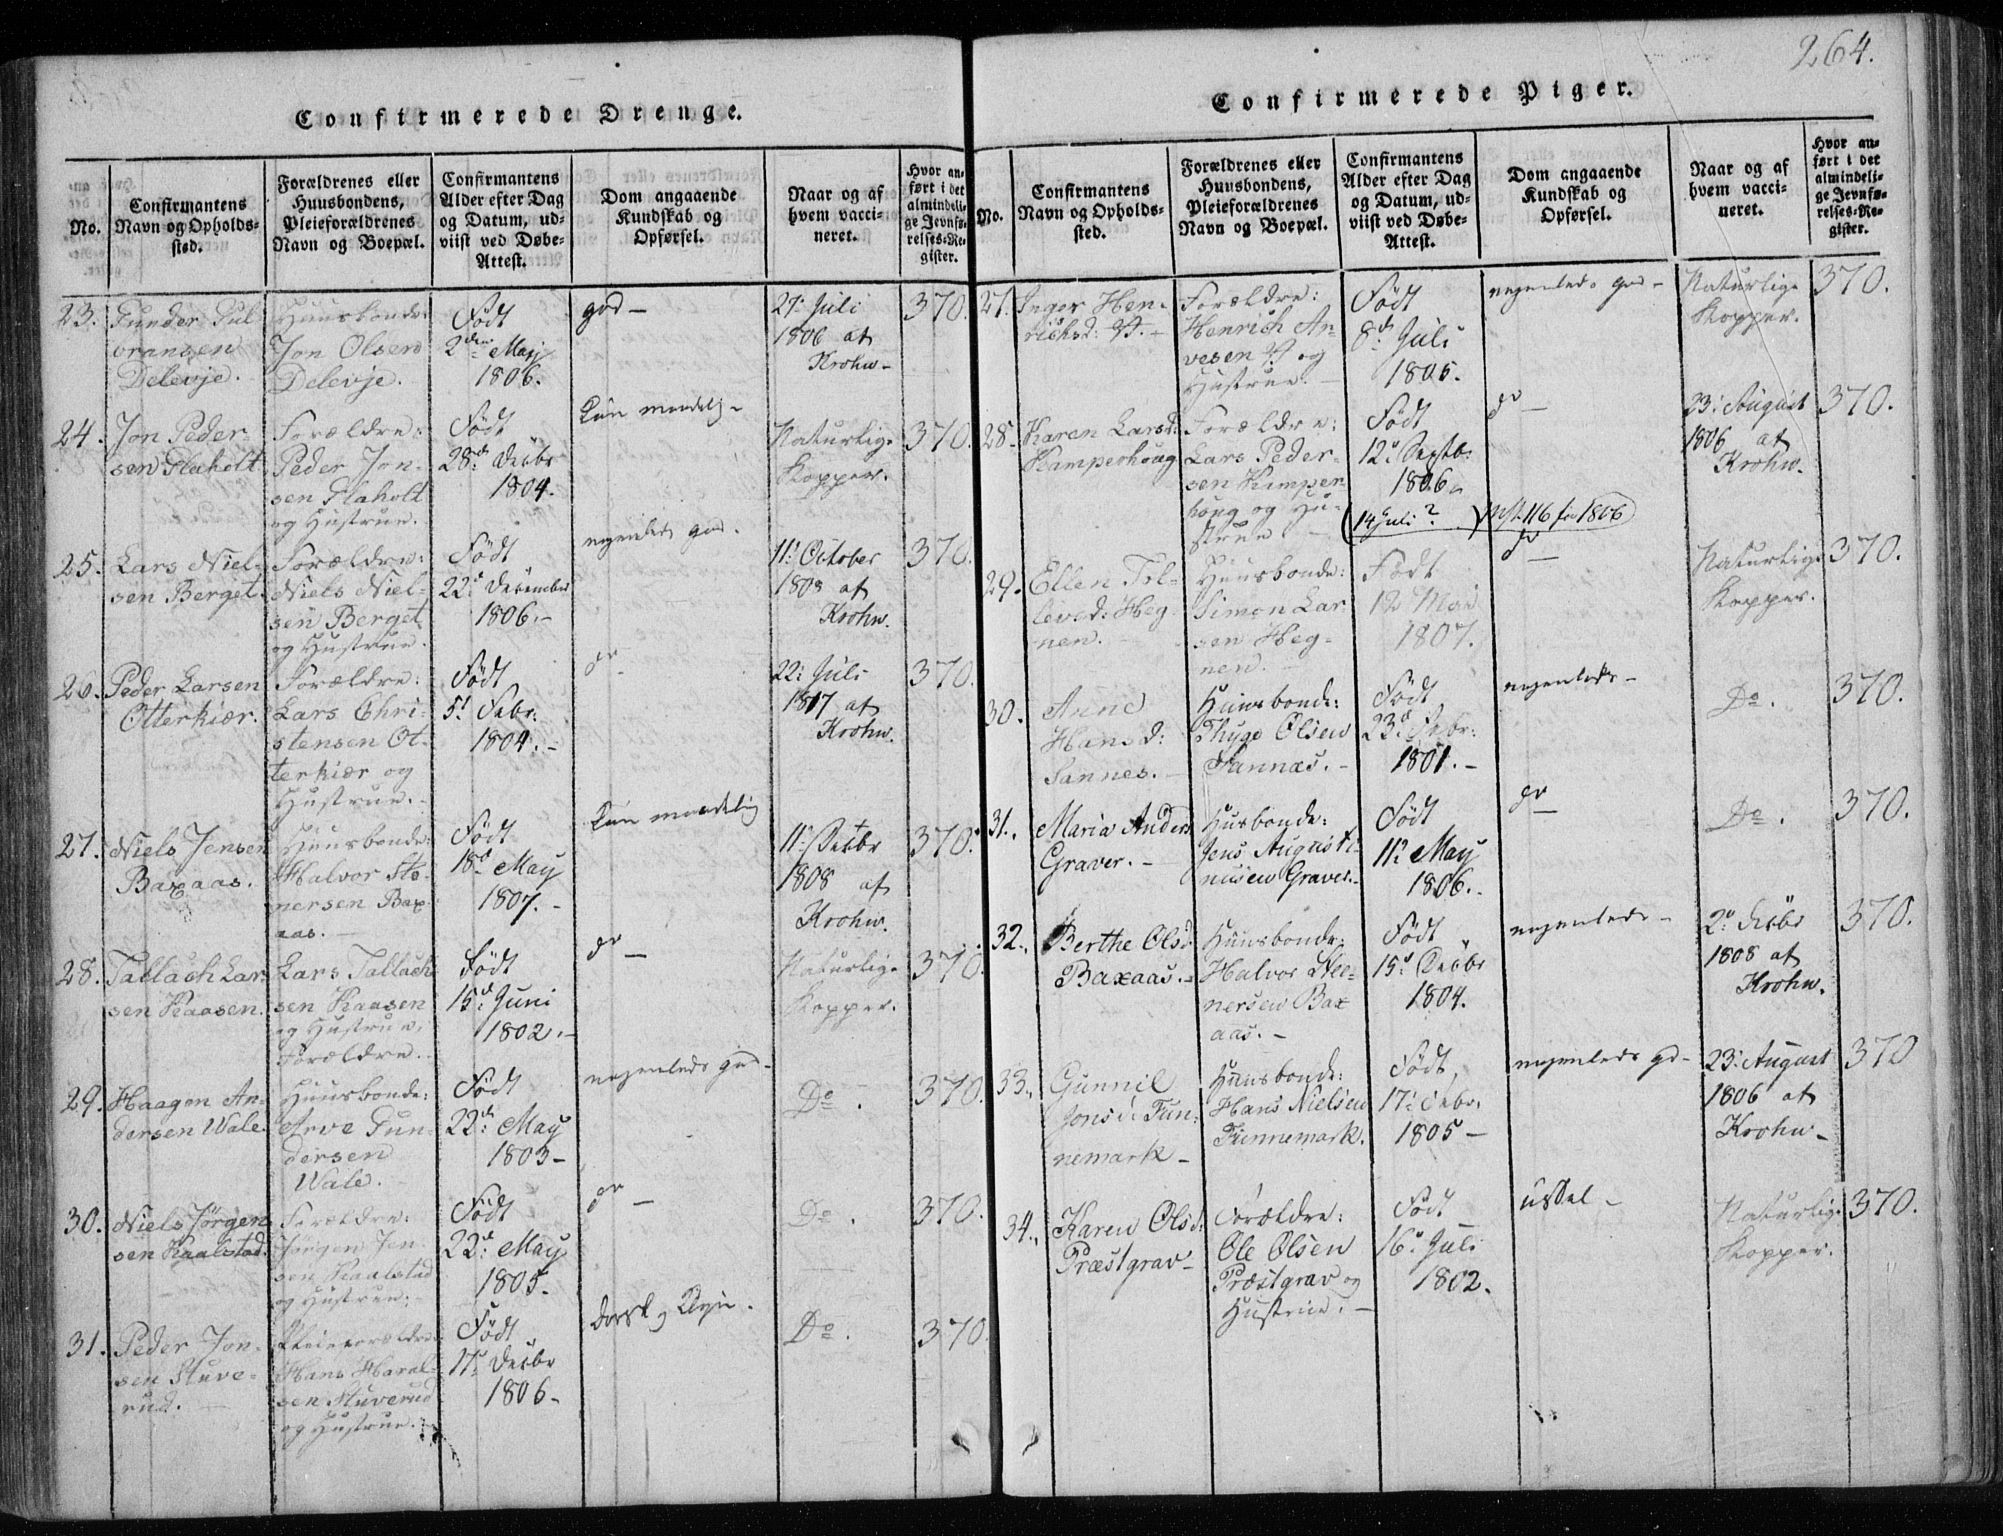 264.
Confirmerede Drenge.
No.
Confirmantens
Navn og Opholds-
sted.
Forældrenes eller
Huusbondens,
Pleieforældrenes
Navn og Boepæl.
Confirmantens
Alder efter Dag
og Datum, ud-
viist ved Døbe-
Attest.
Dom angaaende
Kundskab og
Opførsel.
Naar og af
hvem vacci-
neret.
Hvor an-
ført i det
almindeli-
ge Jevnfø-
relses-Re-
gister.
23.
Gunder Tul
voransen
Delevje.
Huusbonde:
Jon Olsen
Delevje.
Født
2den May
1806.
god —
27. Juli
1806 af
Krohn —
370.
24.
Jon Peder-
sen Flaholt
Forældre:
Peder Jon-
sen Flaholt
og Hustrue.
Født
28de Decbr
1804.
Kun maadelig —
Naturlige
Kopper.
370.
25.
Lars Niel-
sen Berget.
Forældre:
Niels Niel-
sen Berget
og Hustrue.
Født
22de December
1806. —
nogenleds god.
11. October
1808 af
Krohn.
370.
26.
Peder Larsen
Otterkiær.
Forældre:
Lars Chri-
stensen Ot-
terkiær og
Hustrue. —
Født
5. Febr:
1804. —
do —
22. Juli
1817 af
Krohn.
370.
27.
Niels Jensen
Baxaas.
Huusbonde:
Halvor Ste-
nersen Bax
aas. —
Født
18de May
1807. —
Kun maadelig
11. Decbr
1808 af
Krohn.
370.
28.
Tallach Lar-
sen Kaasen.
Lars Tallach
sen Kaasen
og Hustrue,
Forældre.
Født
15de Juni
1802. —
do —
Naturlige
Kopper.
370
29.
Haagen An-
dersen Wale.
Huusbonde:
Arve Gun-
dersen
Wale.
Født
22de May
1803 —
nogenleds god —
Do.
370.
30.
Niels Jørgen
sen Kaalstad.
Forældre:
Jørgen Jen-
sen Kaalstad
og Hustrue. —
Født
22de May
1805.
do —
Do.
370.
31.
Peder Jon-
sen Stuve-
rud. —
Pleieforældre
Hans Haral-
sen Stuverud
og Hustrue.
Født
17. Decbr
1806 —
Do.
370.
Confirmerede Piger.
No.
Confirmantens
Navn og Opholds-
sted.
Forældrenes eller
Huusbondens,
Pleieforældrenes
Navn og Boepæl.
Confirmantens
Alder efter Dag
og Datum, ud-
viist ved Døbe-
Attest.
Dom angaaende
Kundskab og
Opførsel.
Naar og af
hvem vacci-
neret.
Hvor an-
ført i det
almindeli-
ge Jevnfø-
relses-Re-
gister.
27.
Inger Hen-
richsd:
Forældre:
Henrich Ar-
vesen og
Hustrue. —
Født
8de Juli
1805.
nogenleds god —
Naturlige
Kopper.
370.
28.
Karen Larsd:
Kamperhoug
Forældre:
Lars Peder-
sen Kamper
houg og Hu-
strue. —
Født
12. Septb:
1806.
(14 Juli?
No. 116 for 1806)
do —
23. August
1806 af
Krohn.
370.
29.
Ellen Tol-
levsd: Heg-
nen.
Huusbonde:
Simon Lar
sen Heg-
nen. —
Født
12 Mai
1807.
do —
Naturlige
Kopper.
370.
30.
Anne
Hansd:
Sannes. —
Huusbonde:
Thyge Olsen
Sannæs. —
Født
23de Febr:
1801. —
nogenleds —
Do.
370.
31.
Maria Anders
Graver. —
Husbonde:
Jens Augusti-
nusen Graver.
Født
11. May
1806. —
do —
Do.
370.
32.
Berthe Olsd.
Baxaas. —
Huusbonde:
Halvor Ste-
nersen Bax
aas. —
Født
15. Decbr
1804.
nogenleds —
2. Decbr
1808 af
Krohn.
370.
33.
Gunnil
Jonsd: Fun-
nemark —
Huusbonde:
Hans Nielsen
Funnemark.
Født,
17. Febr.
1805 —
nogenleds god —
23. August
1806 af
Krohn —
370
34.
Karen Olsd:
Præstgrav —
Forældre:
Ole Olsen
Præstgrav og
Hustrue. —
Født
16. Juli
1802.
ussel —
Naturlige
Kopper.
370.